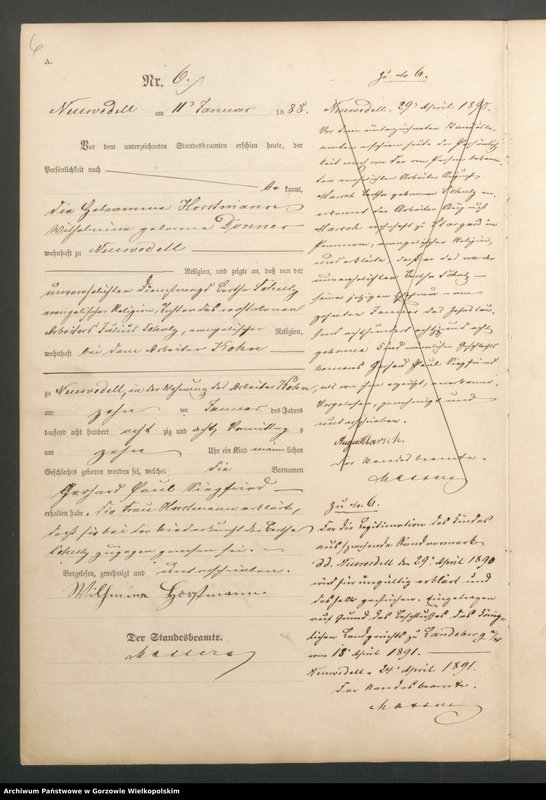 6
A.
Nr. 6.
Neuwedell am 11ten Januar 1888.
Vor dem unterzeichneten Standesbeamten erschien heute, der
Persönlichkeit nach
be kannt,
die Hebeamme Horstmann
Wilhelmine geborene Donner
wohnhaft zu Neuwedell
Religion, und zeigte an, daß von der
unverehelichten Dienstmagd Bertha Schulz
evangelischer Religion, Tochter des verstorbenen
Arbeiters Julius Schulz, evangelischer Religion,
wohnhaft bei dem Arbeiter Kohn
zu Neuwedell, in der Wohnung des Arbeiter Kohn
am zehn ten Januar des Jahres
tausend acht hundert acht zig und acht, Vormittag s
um zehn Uhr ein Kind männlichen
Geschlechts geboren worden sei, welches die Vornamen
Gerhard Paul Siegfried
erhalten habe. Die Frau Horstmann erklärt,
daß sie bei der Niederkunft der Bertha
Schulz zugegen gewesen sei.
Vorgelesen, genehmigt und unterschrieben.
Wilhmine Horstmann
Der Standesbeamte.
Zu No 6.
Neuwedell, 29ten April 1890.
Vor dem unterzeichneten Standesbe-
amten erschien heute der Persönlich-
keit nach
Arbeiter August
Bertha geborenen Schulz
der Arbeiter August
wohnhaft zu Stargard in
Pommern, evangelischer Religion,
und erklärte, daß er das von der
unverehelichten Bertha Schulz
seiner jetzigen Ehefrau am
zehnten Januar des Jahres tau-
send achthundert achtzig und acht
geborene Kind männlichen Geschlechts
Namens Gerhard Paul Siegfried
als von ihm erzeugt, anerkenne.
Vorgelesen, genehmigt und
unterschrieben.
Der Standesbeamte.
Zu No 6.
Der die Legitimation des Kindes
aussprechende Randvermerk
dd. Neuwedell den 29ten April 1890
wird für ungültig erklärt und
deshalb gestrichen. Eingetragen
auf Grund des Beschlusses des König-
lichen Landgerichts zu Landsberg a/W
vom 18ten April 1891.
Neuwedell, 24ten April 1891.
Der Standesbeamte.
Archiwum Państwowe w Gorzowie Wielkopolskim